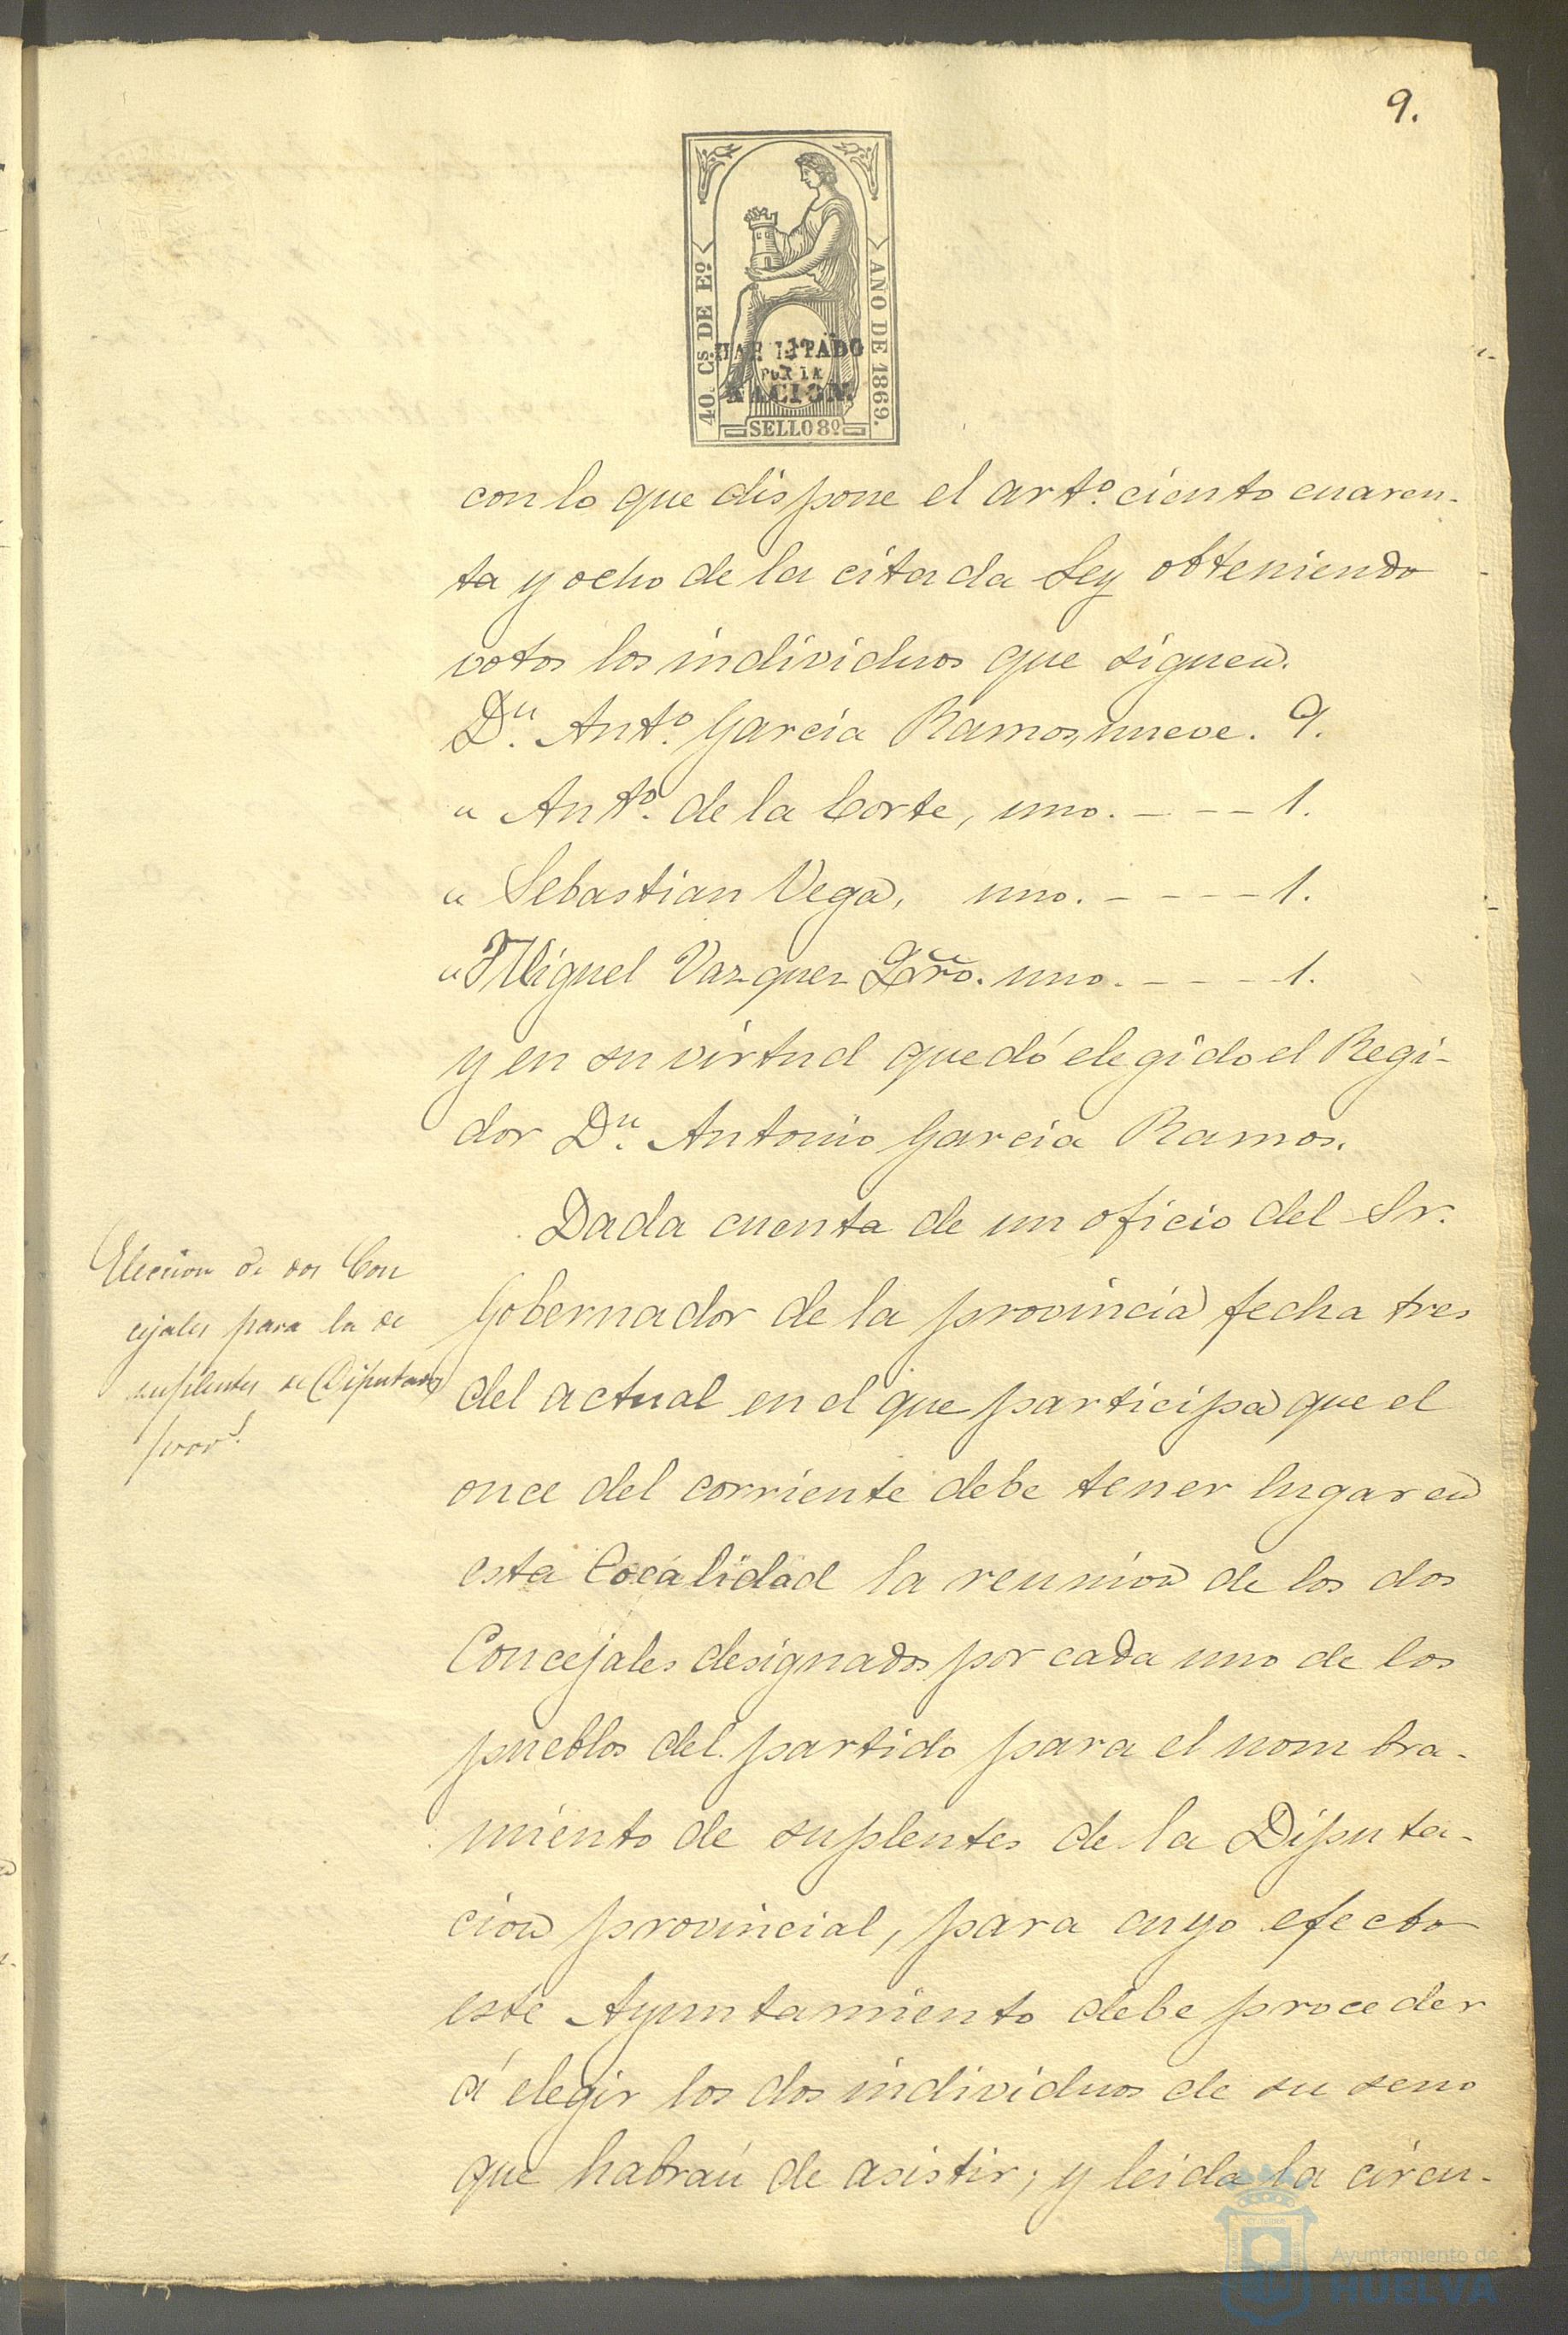 9.
40. Cs. DE Eº.
AÑO DE 1869.
HABILITADO
POR LA
NACION.
SELLO 8º
con lo que dispone el artº. ciento cuaren-
ta y ocho de la citada Ley obteniendo
votos los individuos que siguen.
Dn. Antº. Garcia Ramos, nueve. 9.
" Antº. de la Corte, uno. - - - 1.
" Sebastian Vega, uno. - - - - 1.
" Miguel Vazquez uno. - - - - 1.
y en su virtud quedó elegido el Regi-
dor Dn. Antonio Garcia Ramos.
Dada cuenta de un oficio del Sr.
Gobernador de la provincia fecha tres
del actual en el que participa que el
once del corriente debe tener lugar en
esta localidad la reunion de los dos
Concejales designados por cada uno de los
pueblos del partido para el nombra-
miento de suplentes de la Diputa-
cion provincial, para cuyo efecto
este Ayuntamiento debe proceder
á elegir los dos individuos de su seno
que habrán de asistir; y leida la circu-
Eleccion de dos Con
cejales para la de
suplentes de Diputados
provl.
Ayuntamiento de
HUELVA